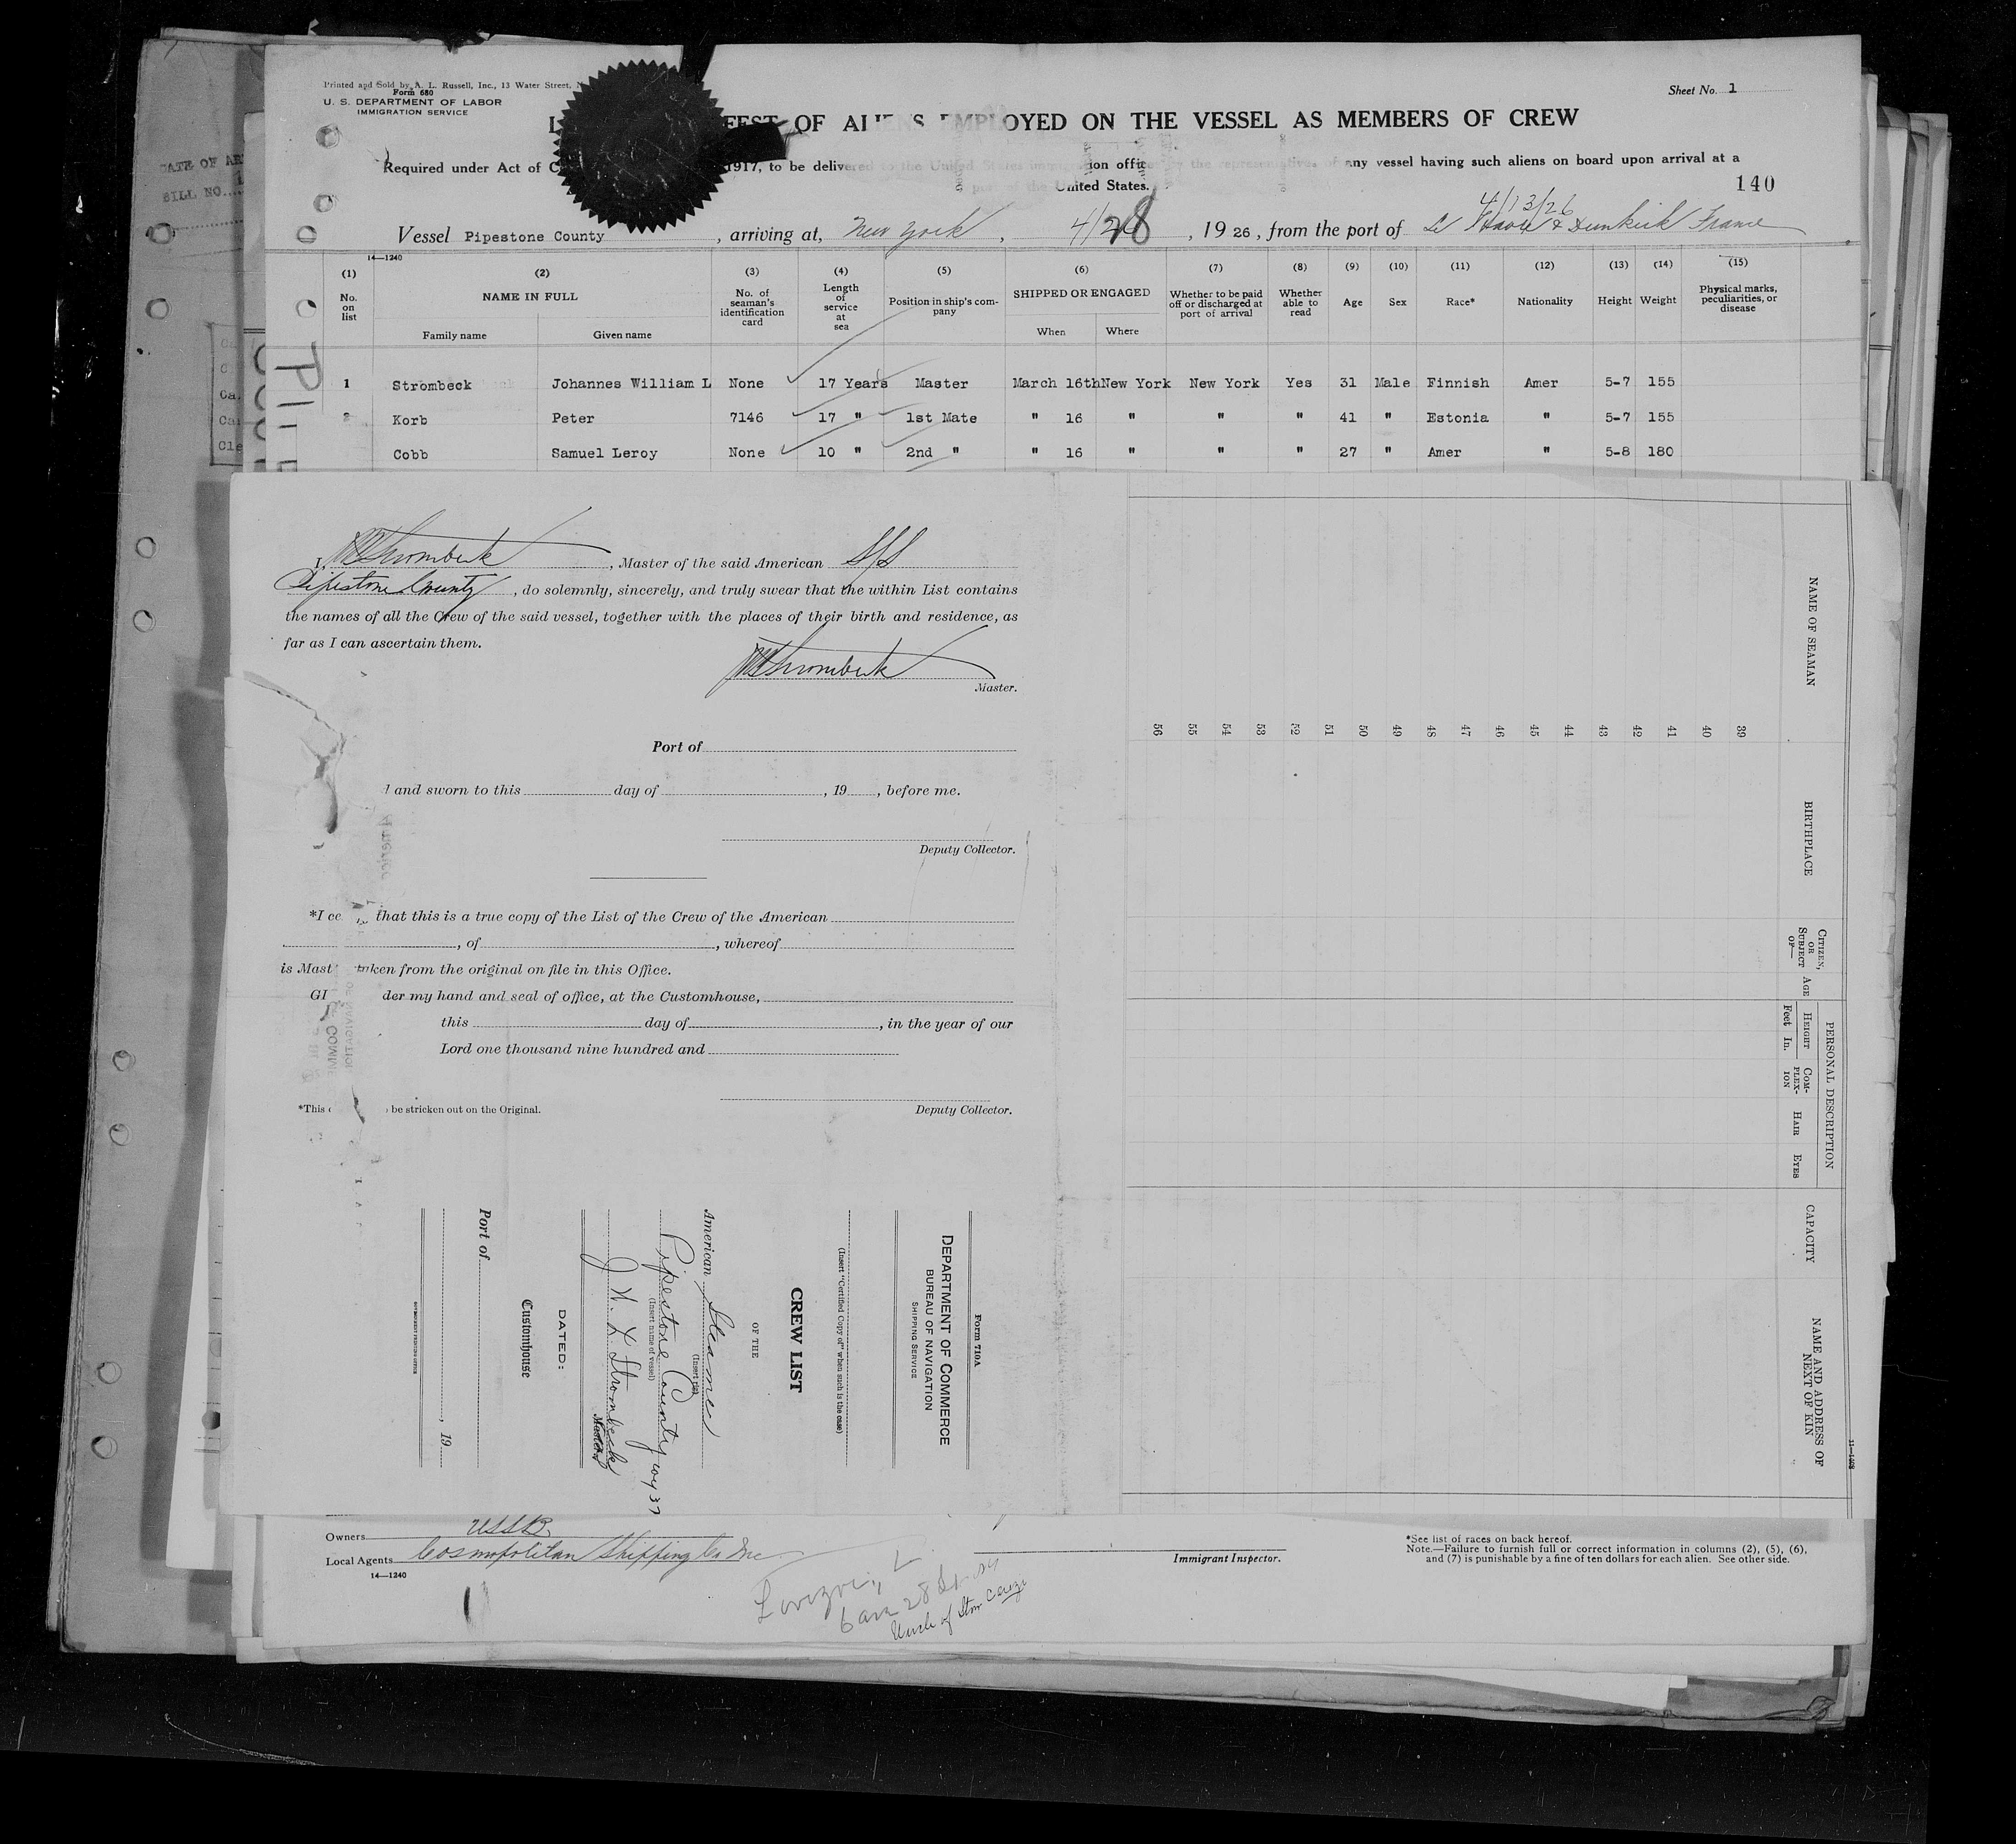 Printed and Sold by A. L. Russell, Inc., 13 Water Street, N
Form 680
U. S. DEPARTMENT OF LABOR
IMMIGRATION SERVICE
Sheet No. 1
FEST OF ALIENS EMPLOYED ON THE VESSEL AS MEMBERS OF CREW
Required under Act of C 1917, to be delivered to the United States immigration officer by the representatives of any vessel having such aliens on board upon arrival at a
port of the United States.
140
4/13/26
Vessel Pipestone County, arriving at, New York, 4/28, 1926, from the port of Le Havre & Dunkirk France
14—1240
(1) (2) (3) (4) (5) (6) (7) (8) (9) (10) (11) (12) (13) (14) (15)
No. on list NAME IN FULL Family name Given name No. of seaman's identification card Length of service at sea Position in ship's company SHIPPED OR ENGAGED When Where Whether to be paid off or discharged at port of arrival Whether able to read Age Sex Race* Nationality Height Weight Physical marks, peculiarities, or disease
1 Strombeck Johannes William L None 17 Years Master March 16th New York New York Yes 31 Male Finnish Amer 5-7 155
2 Korb Peter 7146 17 " 1st Mate " 16 " " " 41 " Estonia " 5-7 155
Cobb Samuel Leroy None 10 " 2nd " " 16 " " " 27 " Amer " 5-8 180
DATE OF AR
BILL NO.
I, JWLStrombeck, Master of the said American S/S
Pipestone County, do solemnly, sincerely, and truly swear that the within List contains
the names of all the Crew of the said vessel, together with the places of their birth and residence, as
far as I can ascertain them.
JWLStrombeck
Master.
Port of
d and sworn to this day of , 19 , before me.
Deputy Collector.
*I ce that this is a true copy of the List of the Crew of the American
, of , whereof
is Mast taken from the original on file in this Office.
GI der my hand and seal of office, at the Customhouse,
this day of , in the year of our
Lord one thousand nine hundred and
Deputy Collector.
*This be stricken out on the Original.
Form 710A
DEPARTMENT OF COMMERCE
BUREAU OF NAVIGATION
SHIPPING SERVICE
(Insert "Certified Copy of" when such is the case)
CREW LIST
OF THE
American Steamer
(Insert rig)
Pipestone County
(Insert name of vessel)
J. W. L. Strombeck
Master
DATED:
Customhouse
Port of
, 19
GOVERNMENT PRINTING OFFICE
NAME OF SEAMAN
BIRTHPLACE
CITIZEN, OR SUBJECT OF—
AGE
PERSONAL DESCRIPTION
HEIGHT
Feet In.
COMPLEXION
HAIR
EYES
CAPACITY
NAME AND ADDRESS OF NEXT OF KIN
39
40
41
42
43
44
45
46
47
48
49
50
51
52
53
54
55
56
Owners USSB
Local Agents Cosmopolitan Shipping Co Inc
14—1240
Immigrant Inspector.
*See list of races on back hereof.
Note.—Failure to furnish full or correct information in columns (2), (5), (6),
and (7) is punishable by a fine of ten dollars for each alien. See other side.